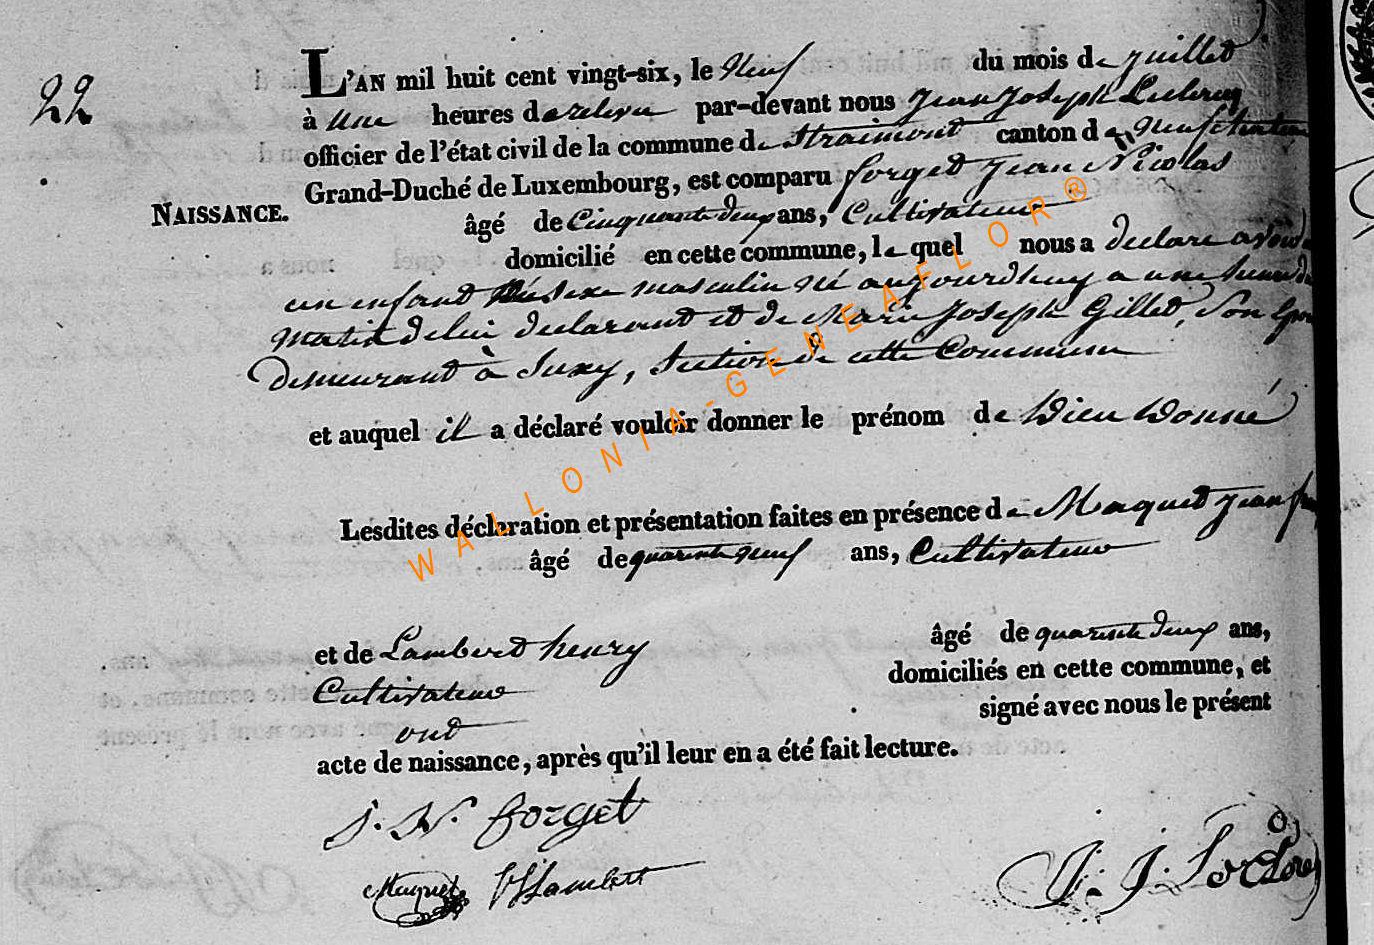 22
NAISSANCE.
L'AN mil huit cent vingt-six, le Neuf du mois de juillet
à une heures de relevée par-devant nous Jean Joseph
officier de l'état civil de la commune de Straimont canton de Neufchateau
Grand-Duché de Luxembourg, est comparu forget Jean Nicolas
âgé de Cinquante deux ans, Cultivateur
domicilié en cette commune, le quel nous a declaré avoir
un enfant du sexe masculin né aujourdhuy a une heure du
matin de lui declarant et de Marie Joseph Gillet, Son
Demeurant à Suxy, Section de cette Commune
et auquel il a déclaré vouloir donner le prénom de Dieu Donné
Lesdites déclaration et présentation faites en présence de Maquet Jean
âgé de quarante neuf ans, Cultivateur
et de Lambert henry âgé de quarante deux ans,
Cultivateur domiciliés en cette commune, et
ont signé avec nous le présent
acte de naissance, après qu'il leur en a été fait lecture.
J. N. forget
Maquet HLambert J. J.
WALLONIA-GENEAFLOR®